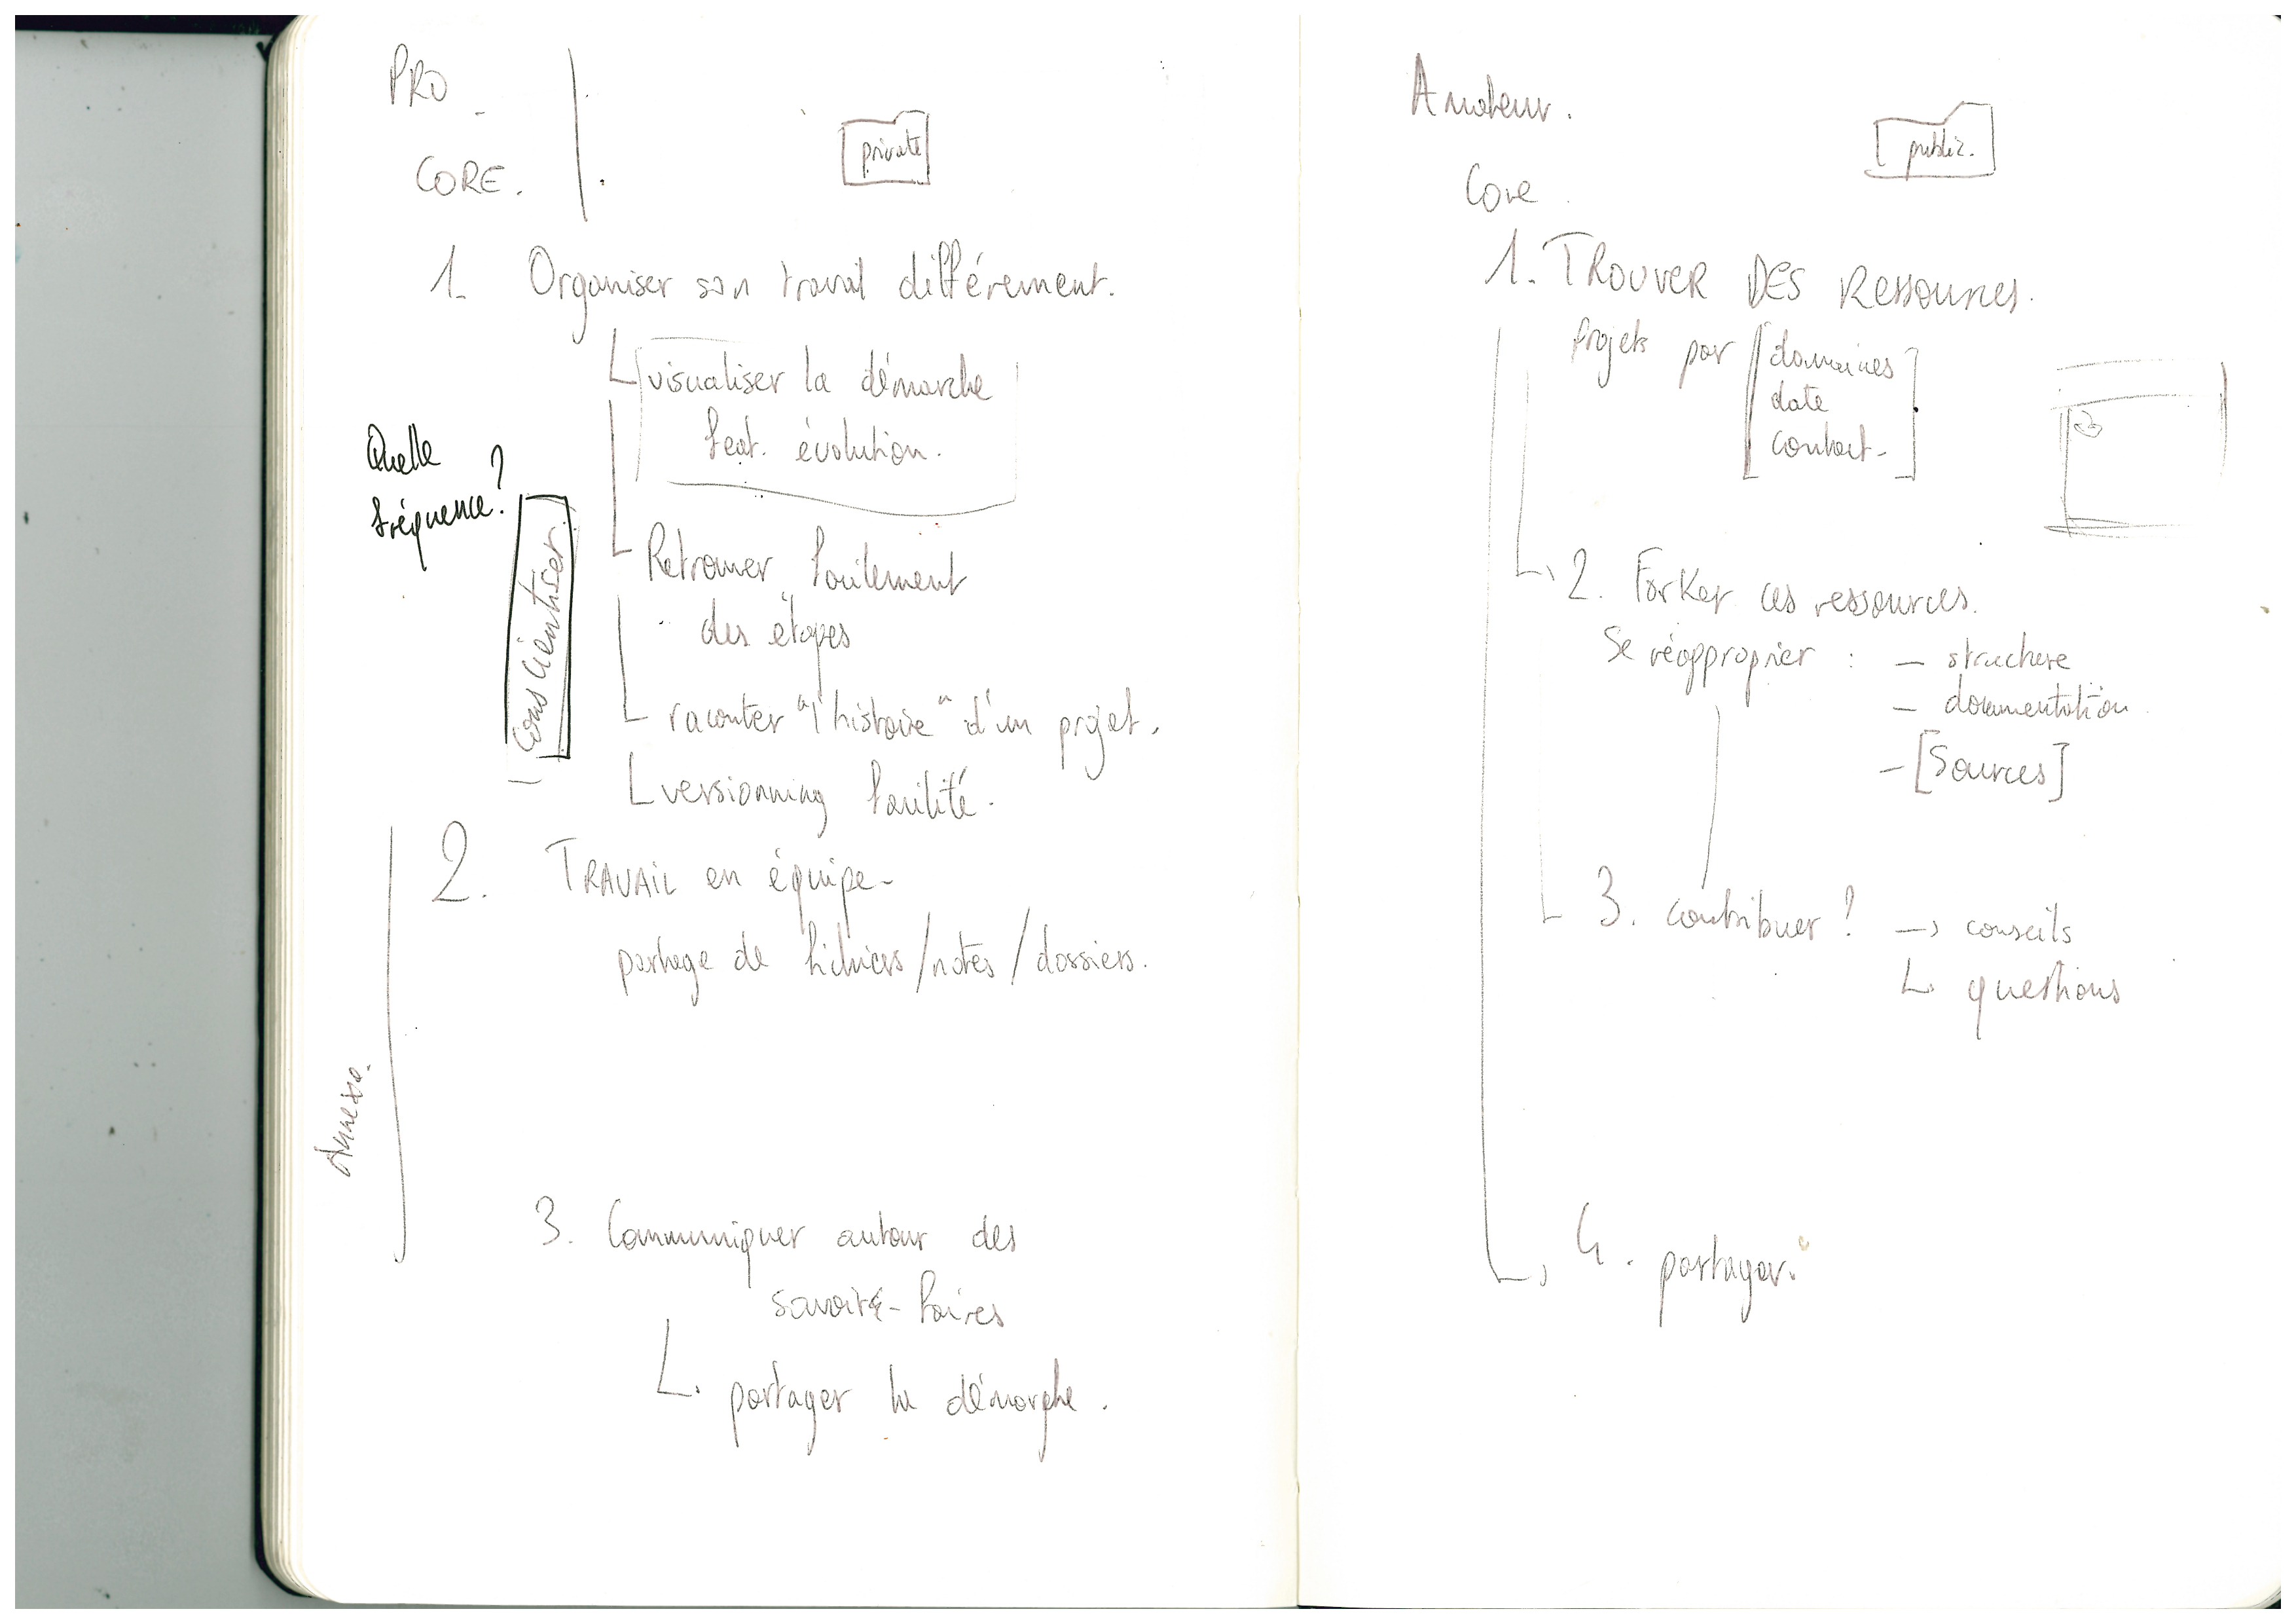 PRO
CORE.
private
1. Organiser son travail différement.
visualiser la démarche
feat. évolution.
Quelle
fréquence?
Conscientiser
Retrouver facilement
des étapes
raconter "l'histoire" d'un projet.
versionning facilité.
2. TRAVAIL en équipe-
partage de fichiers/notes/dossiers.
Annexe.
3. Communiquer autour des
savoirs-faires
partager la démarche.
Amateur.
public.
Core
1. TROUVER DES RESSOURCES.
Projets par
domaines
date
2. Forker ces ressources.
Se réapproprier : - structure
- documentation
- [Sources]
3. contribuer? → conseils
questions
4. partager.